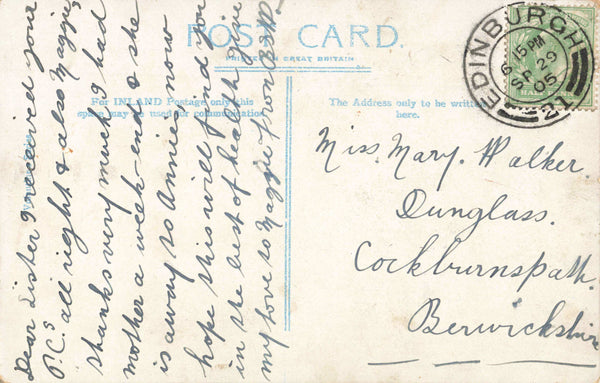 POST CARD.
PRINTED IN GREAT BRITAIN
For INLAND Postage only this
space may be used for communication.
The Address only to be written
here.
EDINBURGH
6 15 PM
SP 29
05
21
HALF PENNY
Miss. Mary. Walker.
Dunglass.
Cockburnspath.
Berwickshire
Dear Sister I received your
P.Cs all right & also Maggie,
thanks very much, I had
mother a week-end & she
is away to Annie's now
hope this will find you
in the best of health, give
my love to Maggie from